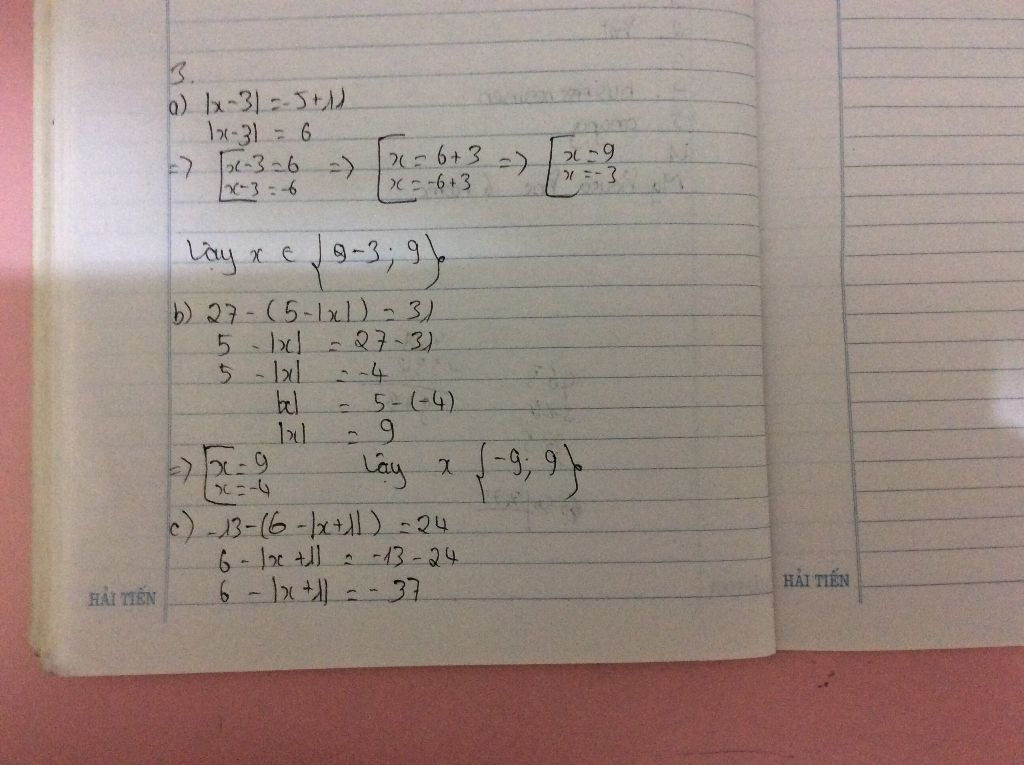 3.
a) |x-3| = -5+11
|x-3| = 6
=> [x-3=6 => [x = 6+3 => [x=9
x-3=-6 x=-6+3 x=-3
Vậy x ∈ {-3; 9}.
b) 27-(5-|x|) = 31
5 - |x| = 27-31
5 - |x| = -4
|x| = 5-(-4)
|x| = 9
=> [x=9 Vậy x {-9; 9}.
x=-4
c) -13-(6-|x+1|) = 24
6-|x+1| = -13-24
6-|x+1| = -37
HẢI TIẾN
HẢI TIẾN